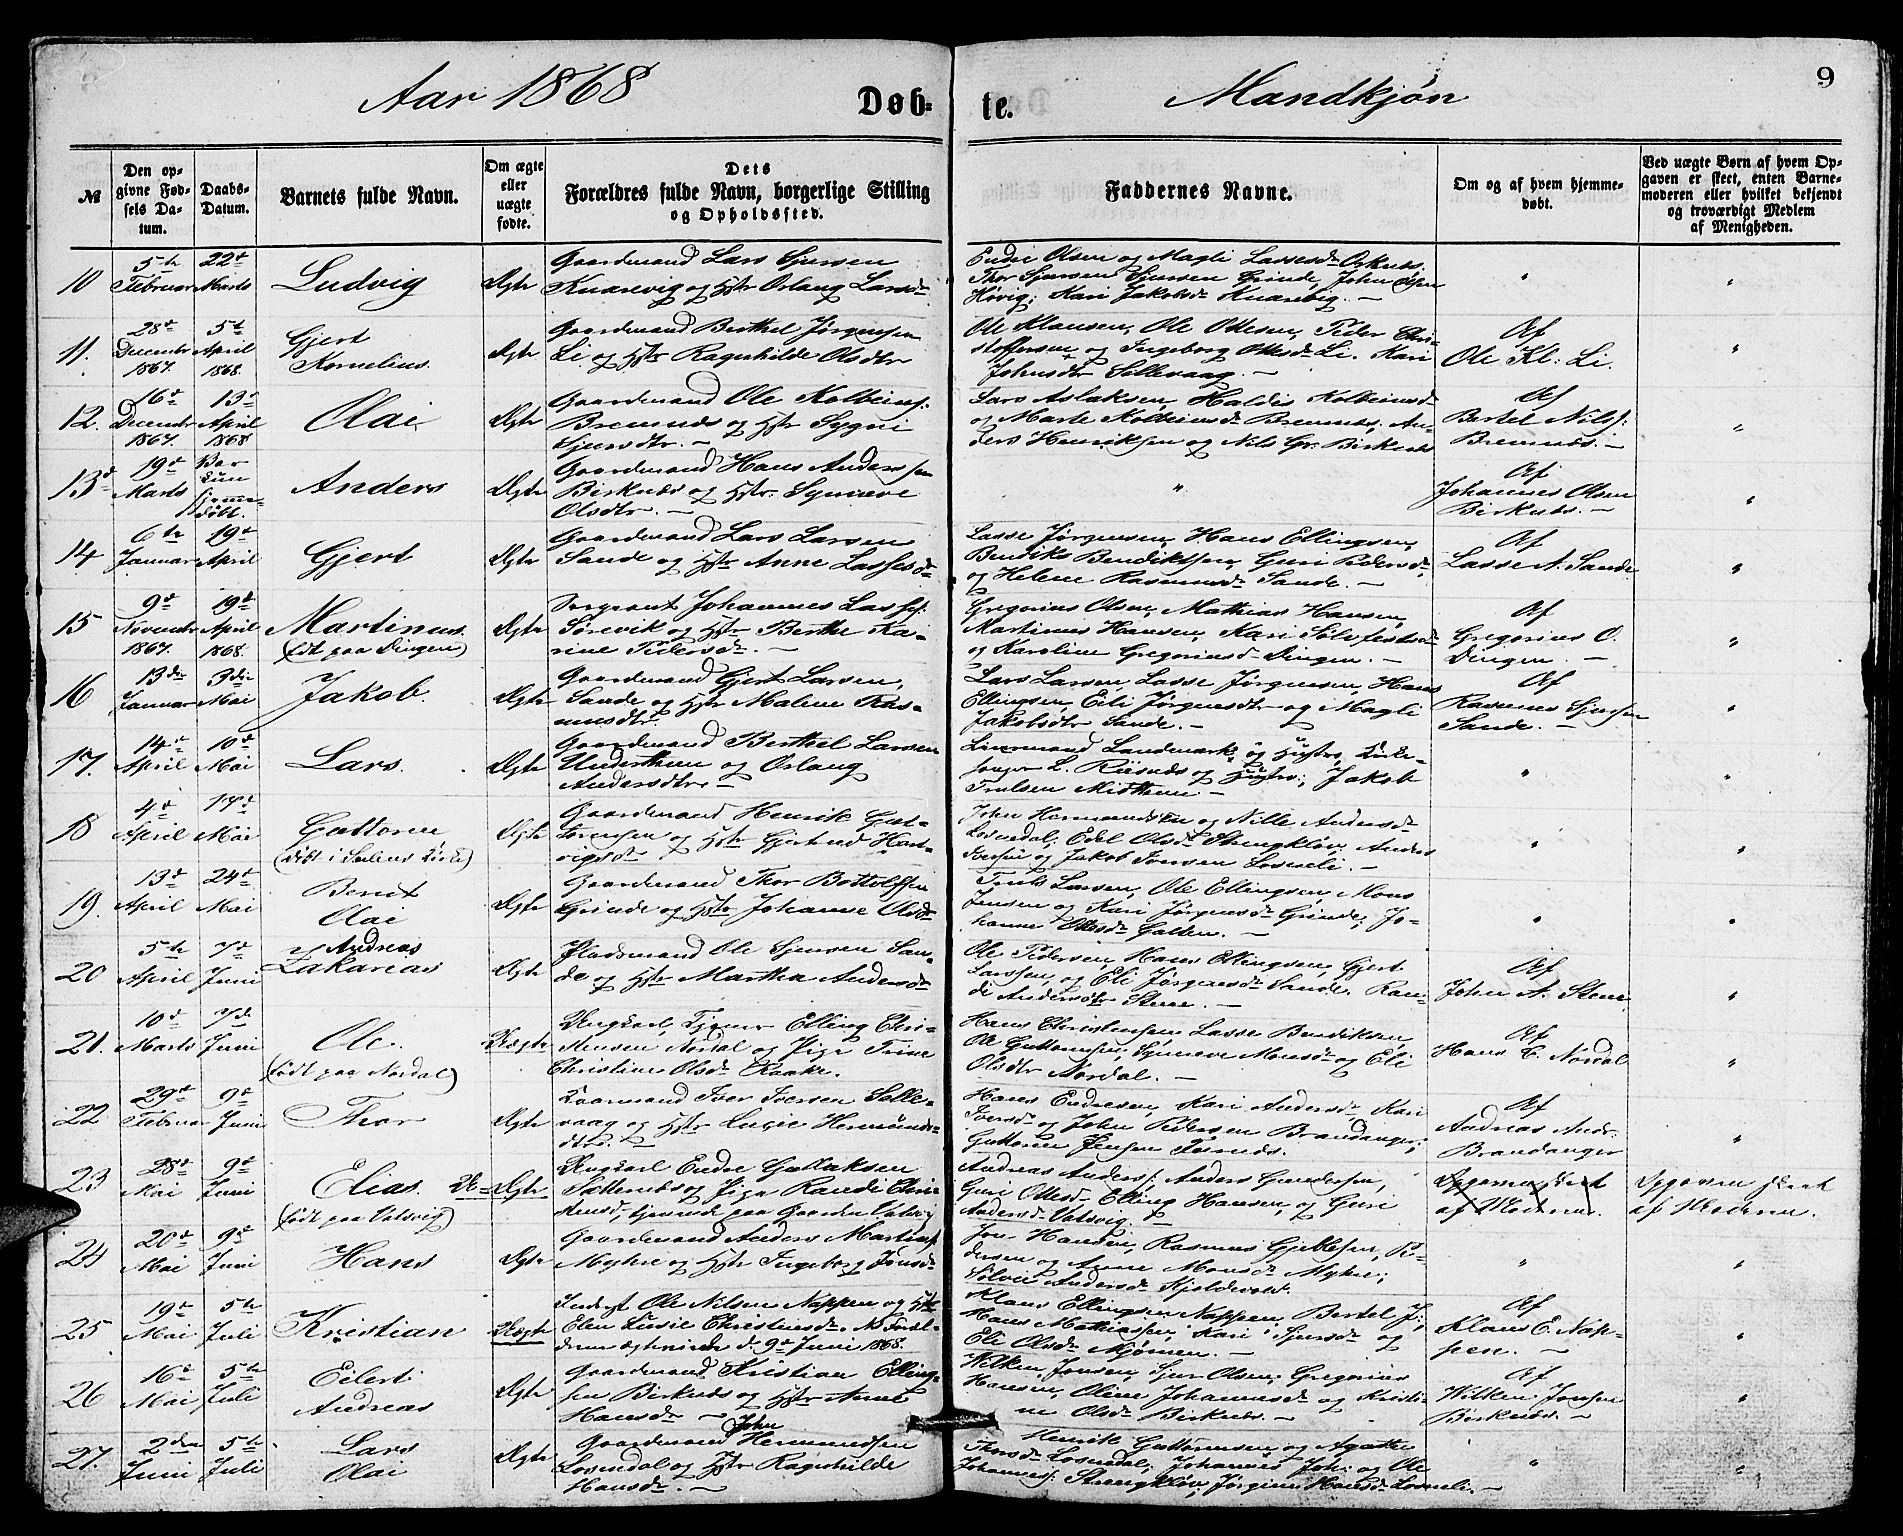 Aar 1868
Døb-
te.
Mandkjøn
9
№
Den op-
givne Fød-
sels Da-
tum.
Daabs-
Datum.
Barnets fulde Navn.
Om ægte
eller
uægte
fødte.
Dets
Forældres fulde Navn, borgerlige Stilling
og Opholdssted.
Faddernes Navne.
Om og af hvem hjemme-
døbt.
Ved uægte Børn af hvem Op-
gaven er skeet, enten Barne-
moderen eller hvilket bekjendt
og troværdigt Medlem
af Menigheden.
10
5te
Februar
22de
Marts
Ludvig
Ægte
Gaardmand Lars Sjursen
Kvarevig og Hstr Orlaug Larsd.
Endre Olsen og Magli Lassesd.
Thor Sjursen Sjursen Grinde, John Olsen
Høvig; Kari Jakobsd. Kvarevig. —
"
"
11.
28de
Decembr
1867.
5te
April
1868.
Gjert
Kornelius.
Ægte
Gaardmand Berthel Jørgensen
Li og Hstr Ragnhilde Olsdtr
Ole Klausen, Ole Ottesen, Peder Chri-
stoffersen og Ingeborg Ottesd. Li. Kari
Johnsdtr Sellevaag. —
Af
Ole Kl: Li.
"
12.
16de
Decembr
1867.
13de
April
1868
Olai
Ægte
Gaardmand Ole Kolbeins:
Bremnes og Hstr Sygni
Sjursdtr. —
Lars Aslaksen, Haldis Kolbeinsd.
og Marte Kolbeinsd. Bremnes; An-
ders Henriksen og Nils Gr. Birknes
Af
Bertel Nilss:
Bremnes. —
"
13
19de
Marts
Bar
Kun
hjemme-
døbt.
Anders
Ægte
Gaardmand Hans Anderssen
Birknes og Hstr. Synneve
Olsdtr. —
"
Af
Johannes Olsen
Birknes. —
"
14
6te
Januar
19de
April
Gjert
Ægte
Gaardmand Lars Larsen
Sande og Hstr Anne Lassesd.
Lasse Jørgensen, Hans Ellingsen,
Bendiks Bendiktsen, Guri Pedersd.
og Helene Rasmusd. Sande. —
Af
Lasse A. Sande
"
15
9de
Novembr
1867.
19de
April
1868.
Martinus.
(født paa Dingen)
Ægte
Sergeant Johannes Lasses:
Sørevik og Hstr Berthe Ka-
rine Pedersd. —
Gregorius Olsen, Mathias Hansen,
Martinus Hansen, Kari Sølvfestsd.
og Karoline Gregoriusd. Dingen. —
Af
Gregorius O.
Dingen. —
"
16
13de
Januar
3die
Mai
Jakob.
Ægte
Gaardmand Gjert Larsen,
Sande og Hstr Malene Ras-
musdtr.
Lars Larsen, Lasse Jørgensen, Hans
Ellingsen, Eli Jørgensdtr og Magli
Jakobsdtr Sande. —
Af
Rasmus Sjursen
Sande. —
"
17.
14de
April
10de
Mai
Lars.
Ægte
Gaardmand Berthel Larsen
Underthun og Orlaug
Andersdtr —
Linsmand Landmark og Hustro, Kirke-
sanger L. Riisnes og Hustro; Jakob
Trulsen Midthun —
"
"
18
4de
April
17de
Mai
Guttorm
(døbt i Sulens Kirke)
Ægte
Gaardmand Henrik Gut-
tormsen og Hstr Gjertrud Hart-
vigsd.
John Hermundsen og Nille Andersd.
Losnedal; Edel Olsd. Strengkløv; Anders
og Jakob Jonsen Losneli. —
"
"
19.
13de
April
24de
Mai
Berut
Olai
Ægte
Gaardmand Thor Bottolfsen
Grinde og Hstr Johanne Olsd.
Truls Larsen, Ole Ellingsen, Mons
Jensen og Kari Jørgensd. Grinde; Jo-
hanne Ottesd. Galten. —
"
"
20
5te
April
7de
Juni
Andreas
Zakarias
Ægte
Pladsmand Ole Sjursen San-
de og Hstr Martha Andersd.
Ole Pedersen, Hans Ellingsen, Gjert
Larssen, og Eli Jørgensd. Sande. Ran-
di Andersdtr Stene. —
Af
John A. Stene
"
21.
10de
Marts
7de
Juni
Ole.
(født paa Nordal)
Uægte
Ungkarl, Tjener Elling Chri-
stensen Nordal og Pige Trine
Christine Olsd. Raake.
Hans Christensen, Lasse Bendiksen,
Ole Guttormsen, Synneve Monsd. og Eli
Olsdtr Nordal. —
Af
Hans C. Nordal
"
22
29de
Februar
9de
Juni
Thor
Ægte
Kaarmand Iver Iversen Selle-
vaag og Hstr Lucie Hermunds-
dtr.
Hans Endresen, Kari Andersd. Kari
Iversd. og John Pedersen Brandanger;
Guttorm Jensen Tosnes.
Af
Andreas Andr:
Brandanger
"
23
28de
Mai
9de
Juni
Elias.
(født paa Vatsvig)
U=Ægte
Ungkarl Endre Gullaksen
Sætternes og Pige Randi Chri-
stensd., tjenende paa Gaarden Vatsvig
Andreas Anders:, Anders Gundersen,
Guri Ottesd. Elling Hansen, og Guri
Andersd. Vatsvig. —
Opgaven skeet
af Moderen.
Opgaven skeet
af Moderen.
24
20de
Mai
9de
Juni
Hans
Ægte
Gaardmand Anders Martins:
Myhre og Hstr Ingeborg Jonsd.
Jon Hansen, Rasmus Gjellesen, Pe-
dersen og Anne Monsd. Myhre;
Silvie Andersd. Kjoldevold.
"
"
25
19de
Mai
5te
Juli
Kristian
Uægte
Inderst Ole Nilsen Nappen og Hstr
Elen Lusie Christensd. NB Foræl-
drene ægteviede d. 9de Juni 1868.
Klaus Ellingsen Nappen, Bertel J:,
Hans Mathiassen, Kari Sjursd. og
Eli Olsd. Mjømen. —
Af
Klaus E. Nap-
pen. —
"
26
16de
Mai
5te
Juli
Eilert
Andreas
Ægte
Gaardmand Kristian Elling-
sen Birknes og Hstr Anne
Hansd. —
Wilken Jonsen, Sjur Olsen; Gregorius
Hansen, Oline Johannesd. og Kristi-
ne Olsd. Birknes. —
Af
Wilken Jonsen
Birknes. —
"
27.
2den
Juni
5te
Juli
Lars
Olai
Ægte
John
Gaardmand Hermundsen
Losnedal og Hstr Ragnhilde
Hansd. —
Henrik Guttormsen og Agathe
Thorsd. Losnedal; Johannes Joh: og Ole
Johannes: Strengkløv, Jørgine Hansd. Losneli. —
"
"